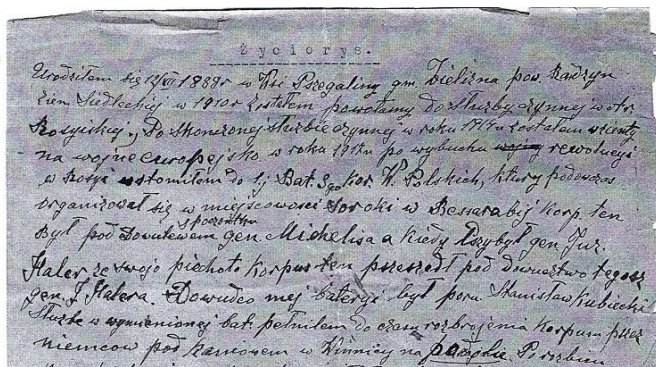 Życiorys.
Urodziłem się 12/VII 1889r w Wsi Pszegaliny gm. Żelizna pow. Radzyn
Ziem. Siedleckij w 1910r zostałem powołany do służby czynnej w
Rosyiskiej, Po skończonej służbie czynnej w roku zostałam wzienty
na wojne europejsko w roku 1917r po wybuchu rewolucyi
w Rosyi wstompiłem do 1j Bat. 3go Kor. W. Polskich, ktury podówczas
organizował się w miejscowości Soroki w Bessarabij Korp. ten
był pod Dowuctwem spoczontku gen. Michelisa a kiedy Przybył gen. Juz.
Haler ze swojo piechoto Korpus ten przeszedł pod dowuctwo tegosz
gen. J Halera. Dowudco mej bateryi był poru. Stanisław Kubiecki
Służbe w wymienionej bat. pełniłem do czasu rozbrojenia Korpusu przez
niemcow pod Kaniowem w Winnicy na Po rozbiciu